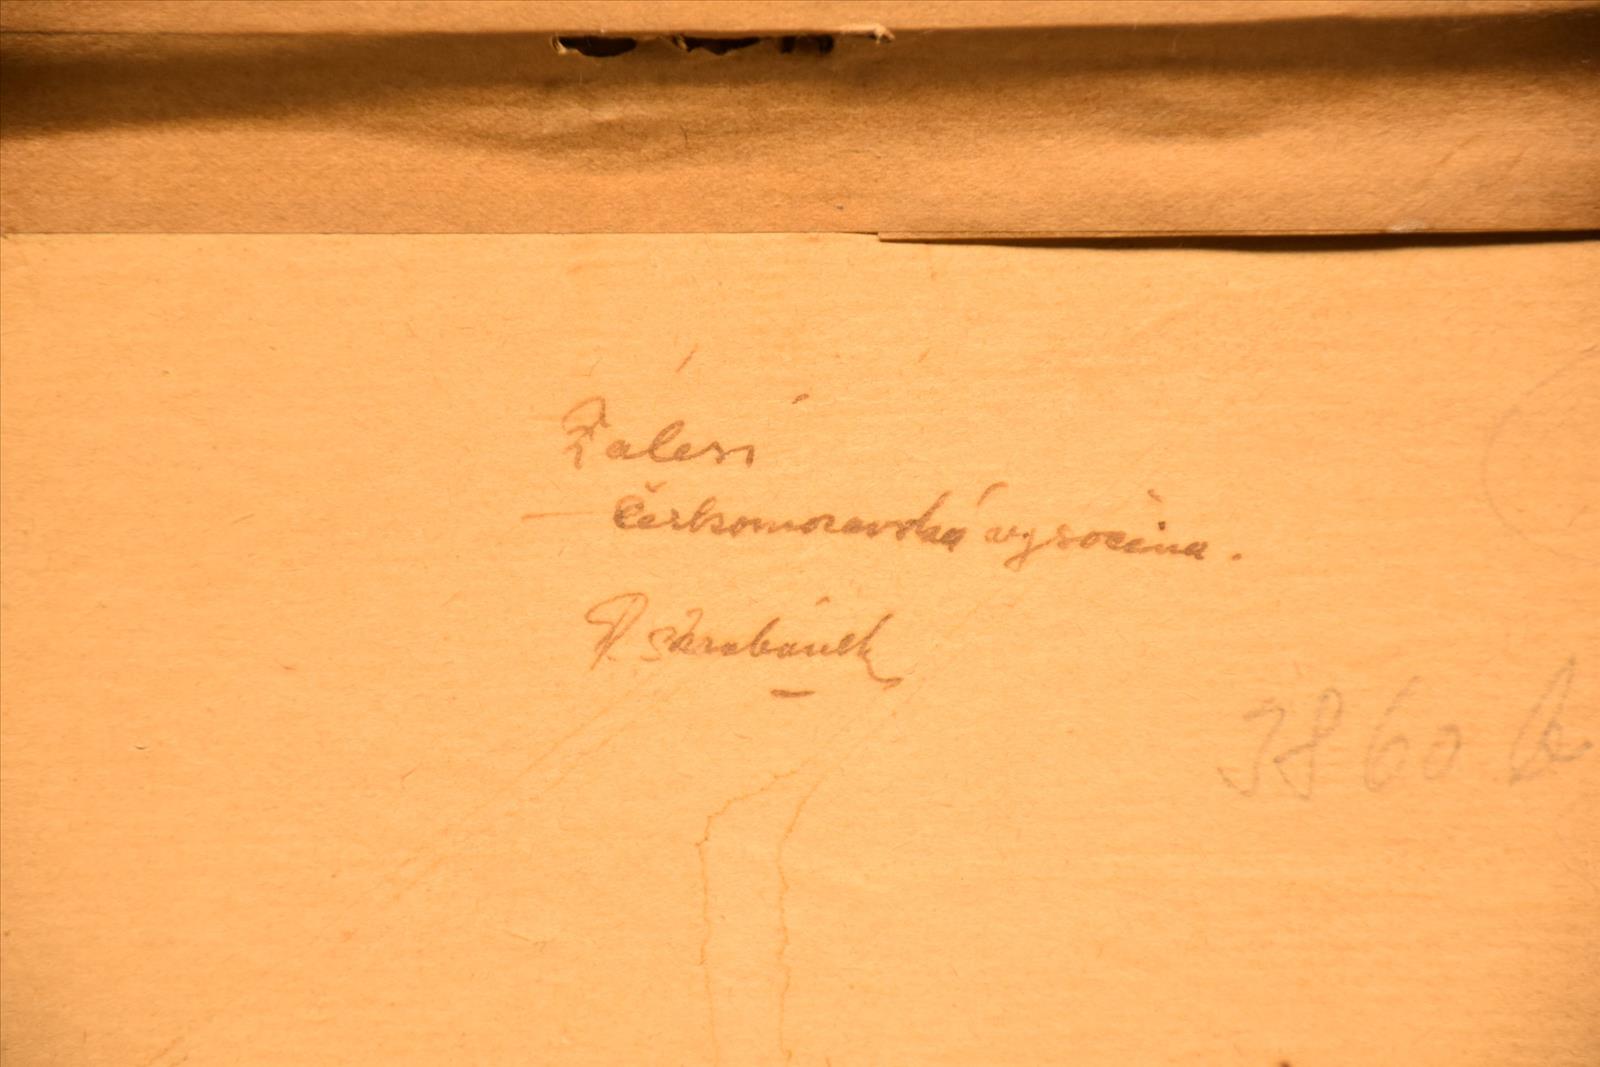 Zálesí
- Českomoravská vysočina.
P. Skrabánek
3860 k